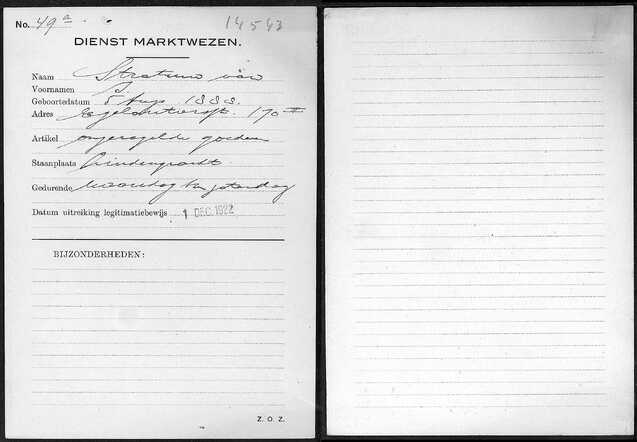 No. 49a. 14543
DIENST MARKTWEZEN.
Naam Stratum van
Voornamen S.
Geboortedatum 5 Aug. 1888.
Adres Egelantierstr. 170 II
Artikel ongeregelde goederen
Staanplaats Lindengracht
Gedurende maandag en zaterdag
Datum uitreiking legitimatiebewijs 1 DEC. 1922
BIJZONDERHEDEN:
Z. O. Z.